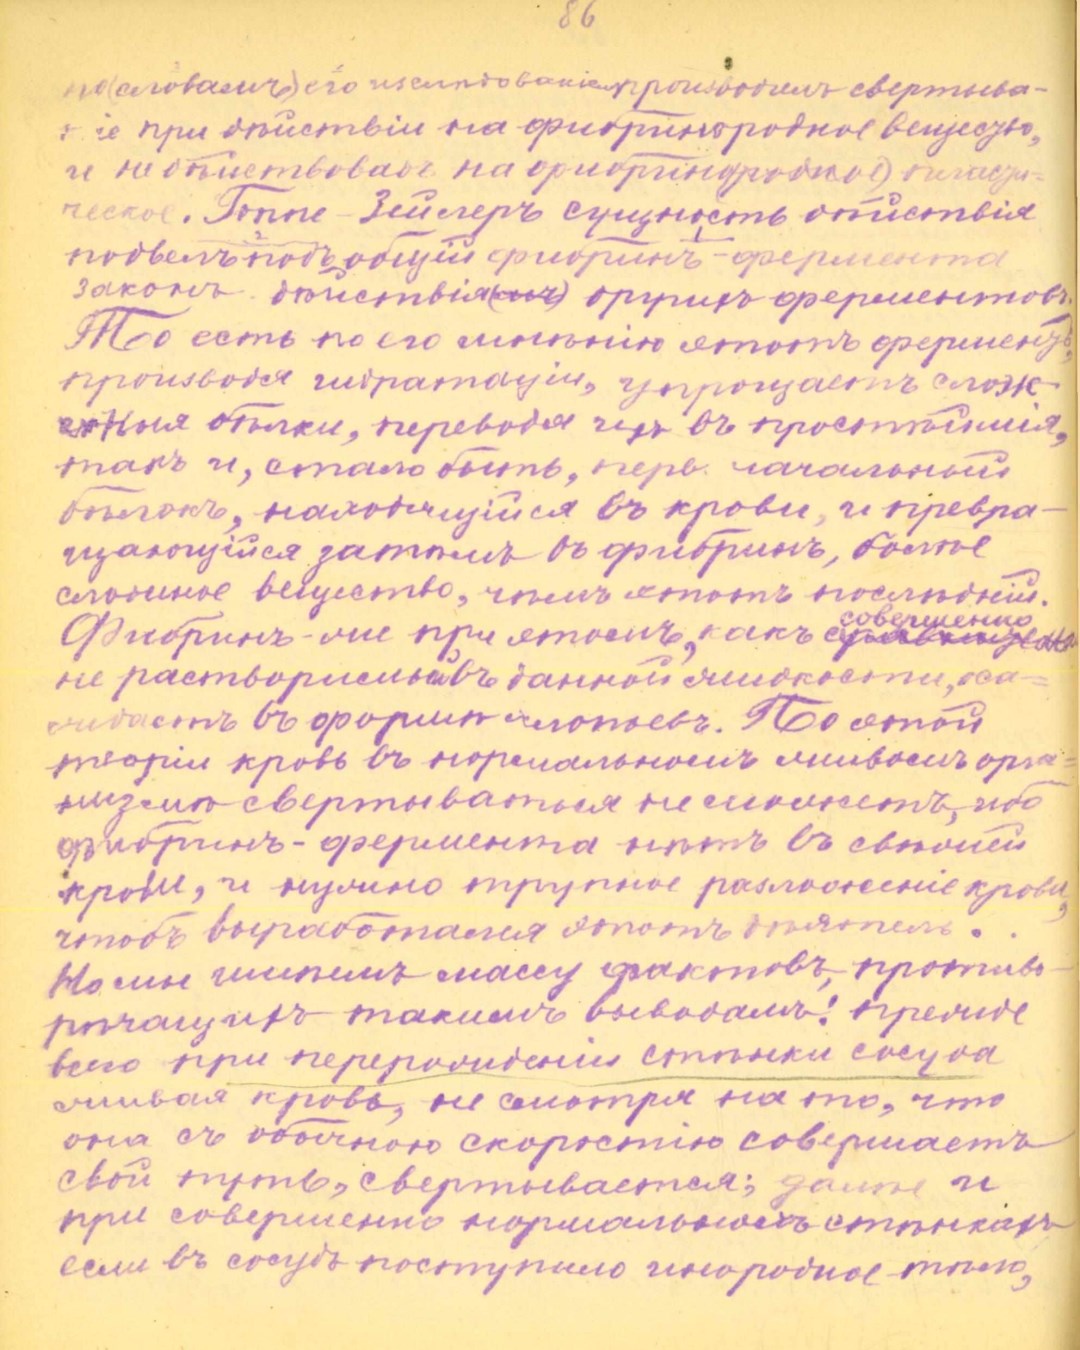 86
по (словамъ) его изслѣдованіямъ производилъ свертыва-
ніе при дѣйствіи на фибриногродное вещество,
и не дѣйствовалъ на фибриногродное) пласти-
ческое. Гоппе-Зейлеръ сущность дѣйствія
подвелъ подъ общій фибринъ-фермента
законъ дѣйствія другихъ ферментовъ.
То есть по его мнѣнію этотъ ферментъ,
производя гидратацію, упрощаетъ слож-
ныя бѣлки, переводя ихъ въ простѣйшія,
такъ и, стало быть, перво начальный
бѣлокъ, находящійся въ крови, и превра-
щающійся затѣмъ въ фибринъ, болѣе
сложное вещество, чѣмъ этотъ послѣдній.
Фибринъ-же при этомъ, какъ совершенно
не растворимый въ данной жидкости, оса-
ждаетъ въ формѣ хлопьевъ. По этой
теоріи кровь въ нормальномъ живомъ орга-
низмѣ свертываться не можетъ, ибо
фибринъ-фермента нѣтъ въ свѣжей
крови, и нужно трупное разложеніе крови,
чтобъ выработался этотъ дѣятель.
Но мы имѣемъ массу фактовъ, противо-
рѣчащихъ такимъ выводамъ: прежде
всего при перерожденіи стѣнки сосуда
живая кровь, не смотря на то, что
она съ обычною скоростію совершаетъ
свой путь, свертывается; далѣе и
при совершенно нормальныхъ стѣнкахъ
если въ сосудъ поступило инородное тѣло,